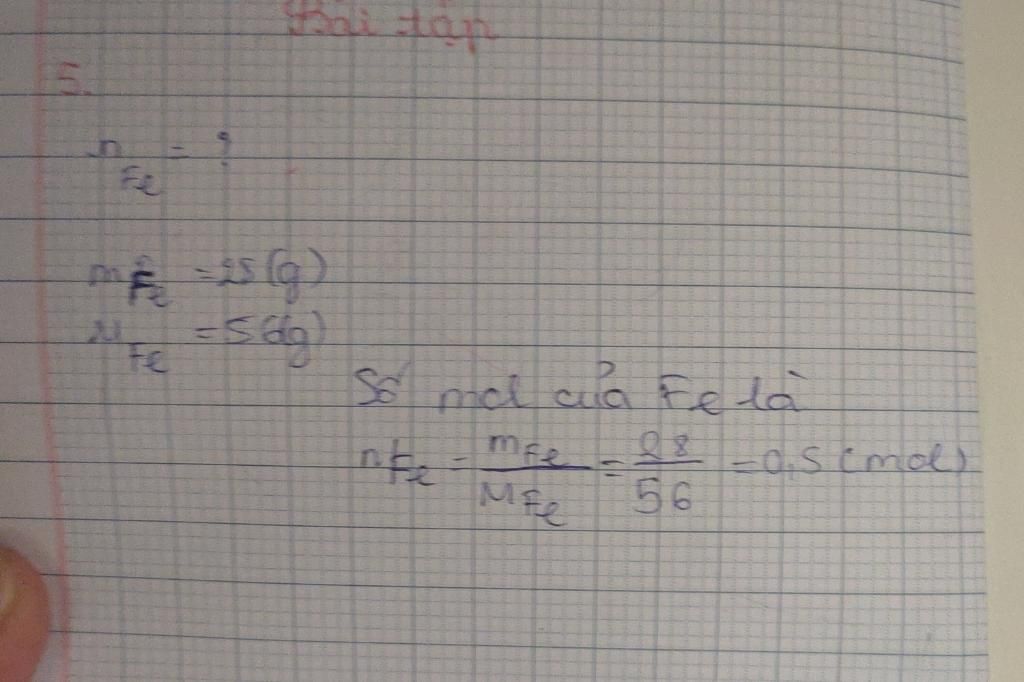 Bài tập
5.
n Fe = ?
m Fe = 25 (g)
M Fe = 56(g)
Số mol của Fe là
n Fe = m Fe / M Fe = 28 / 56 = 0,5 (mol)